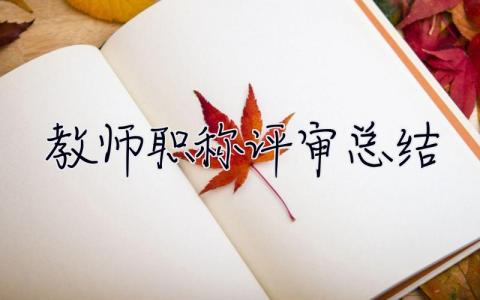 教师职称评审总结